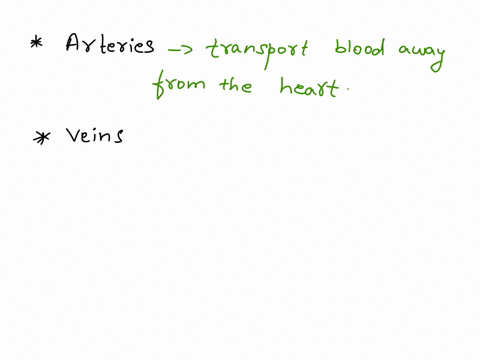 * Arteries -> transport blood away
from the heart.
* Veins